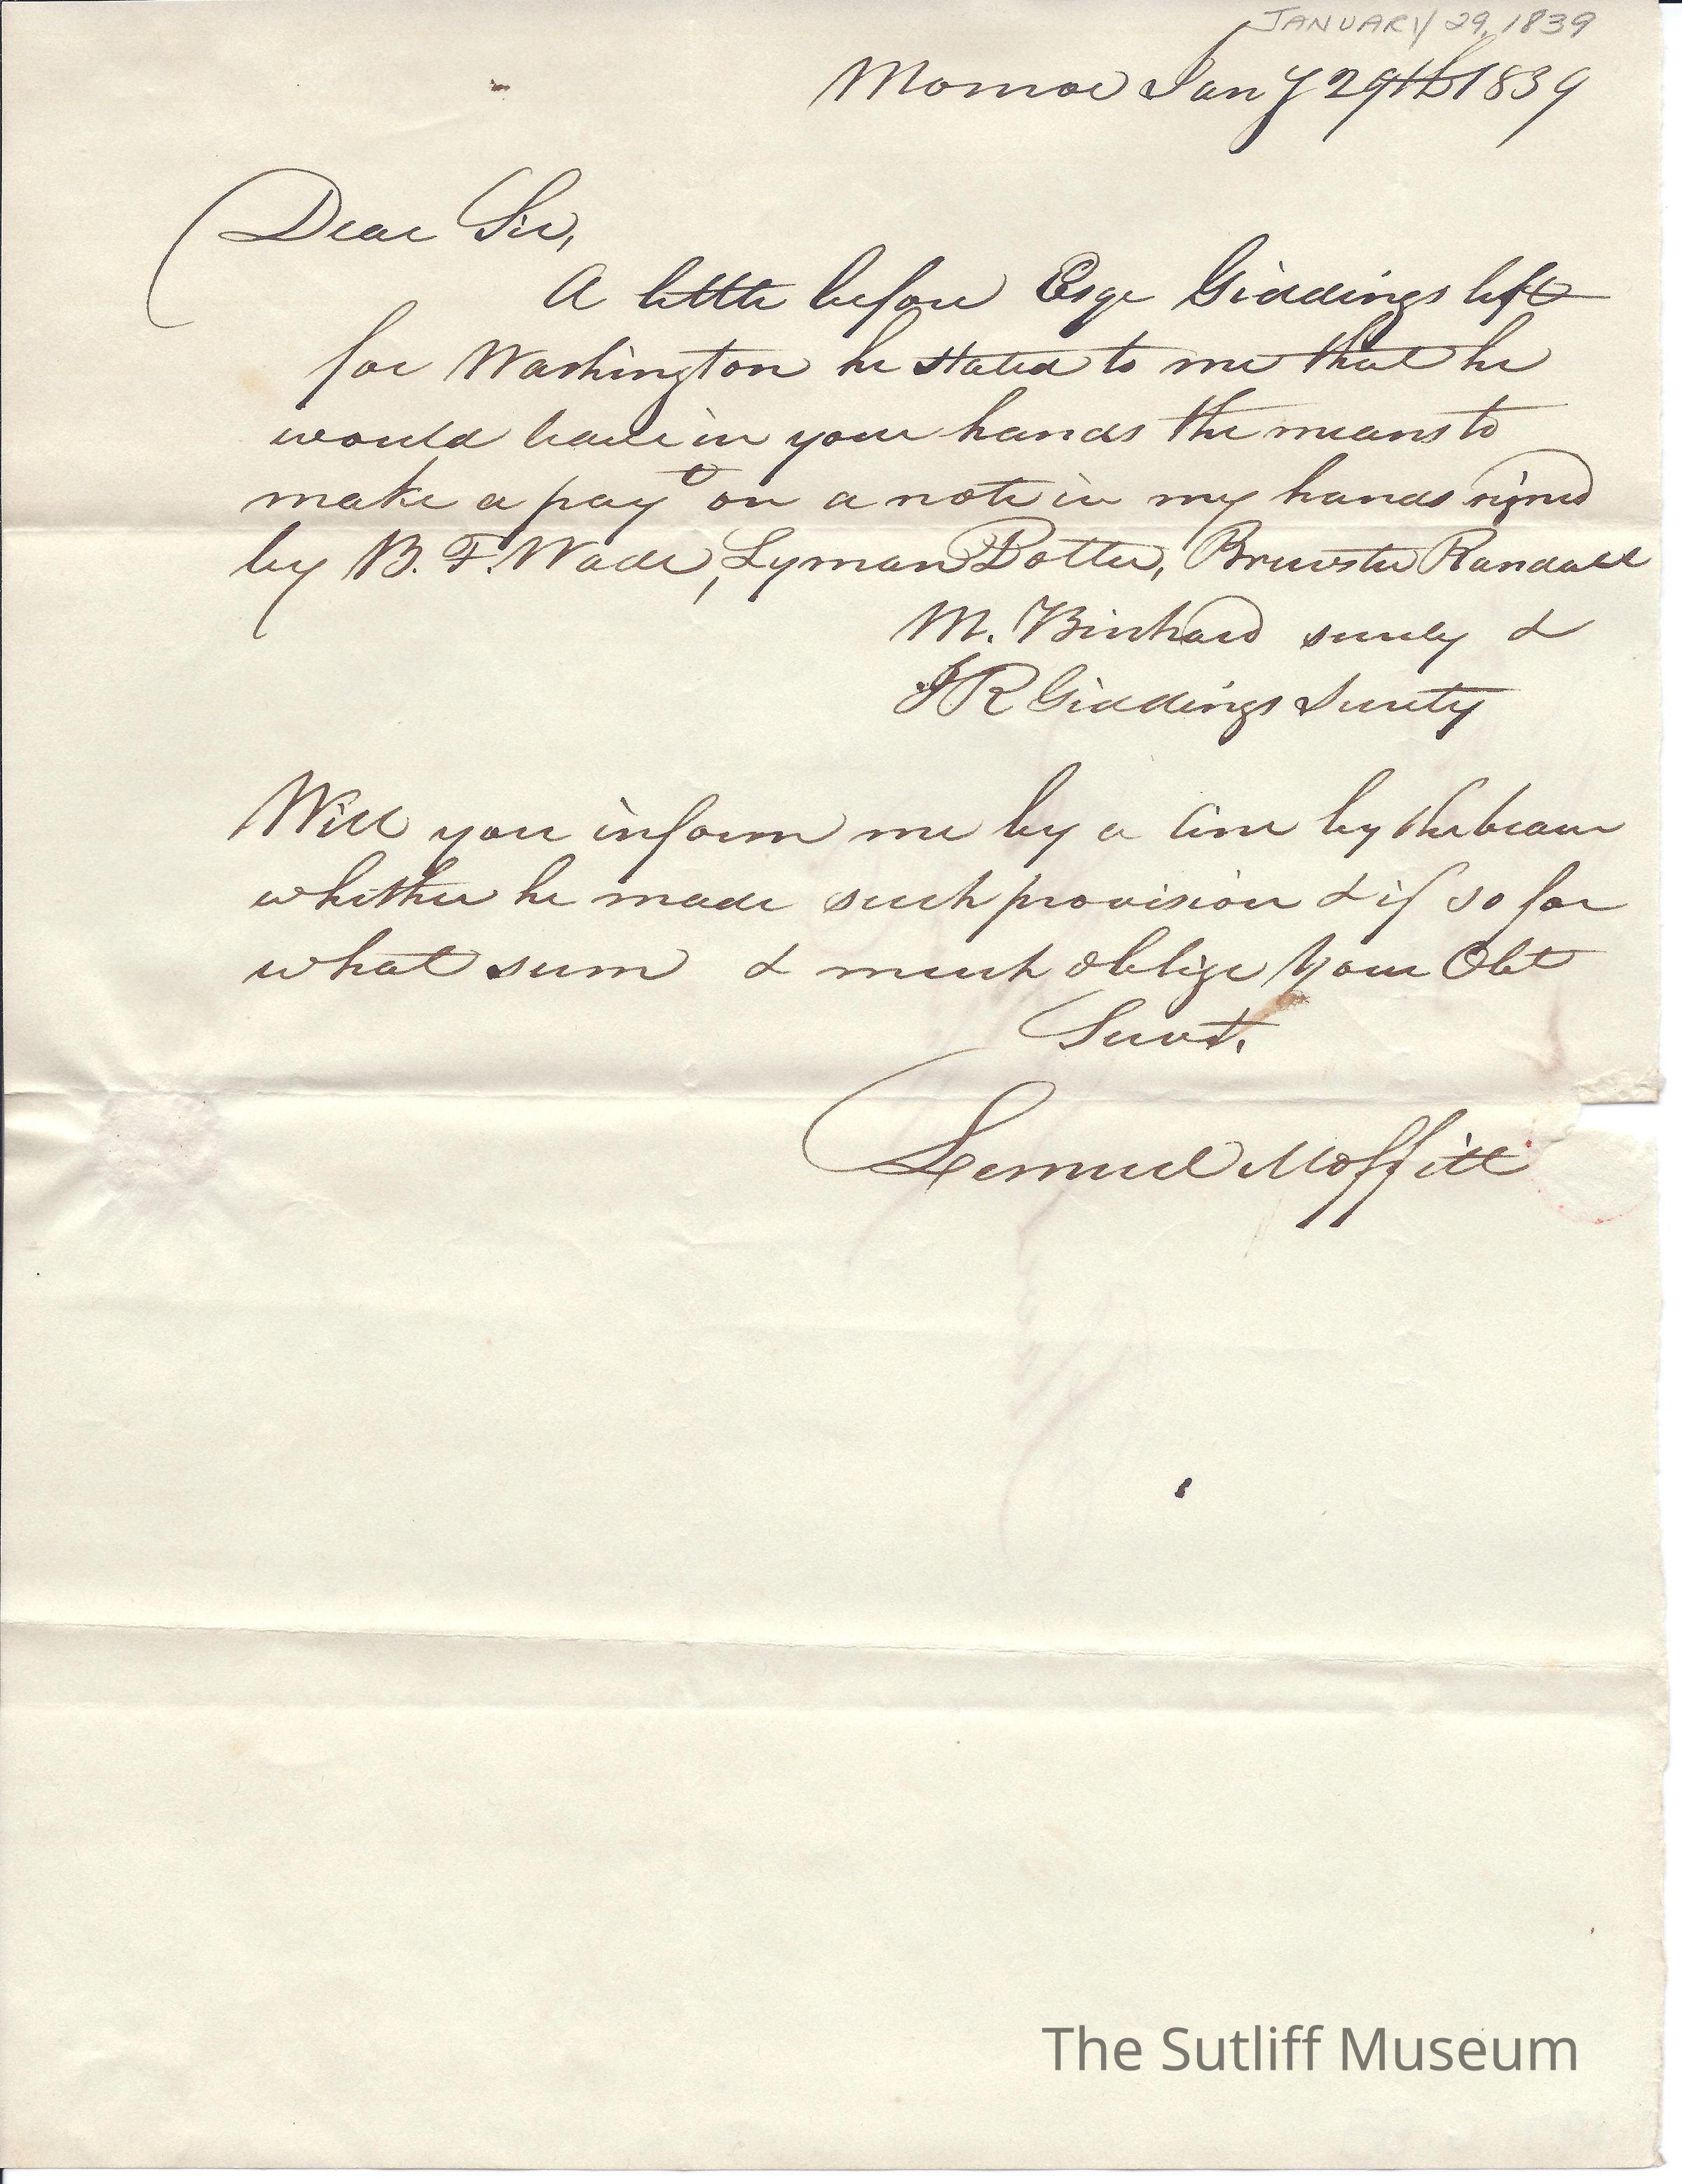 JANUARY 29, 1839
Monroe Jany 29th 1839
Dear Sir,
A little before Esqr Giddings left
for Washington he stated to me that he
would leave in your hands the means to
make a pay on a note in my hands signed
by B. F. Wade, Lyman Potter, Brewster Randall
M. Birchard surety &
J R Giddings Surety
Will you inform me by a line by the bearer
whether he made such provision & if so for
what sum & much oblige Your Obt
Servt.
Lemuel Moffitt
The Sutliff Museum